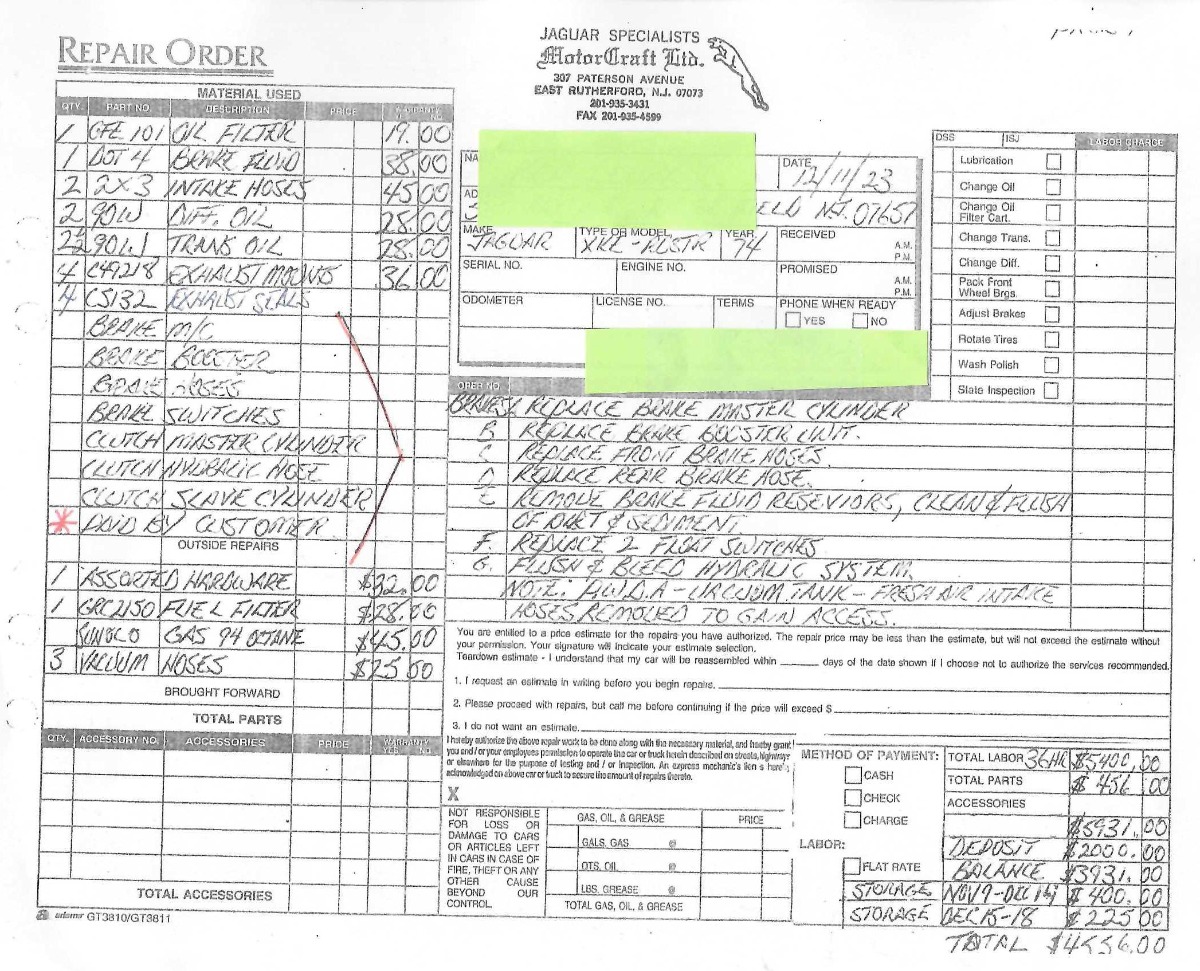 REPAIR ORDER
JAGUAR SPECIALISTS
MotorCraft Ltd.
307 PATERSON AVENUE
EAST RUTHERFORD, N.J. 07073
201-935-3431
FAX 201-935-4599
MATERIAL USED
QTY. PART NO. DESCRIPTION PRICE WARRANTY YES NO
1 GFE 101 OIL FILTER 19.00
1 DOT 4 BRAKE FLUID 38.00
2 2X3 INTAKE HOSES 45.00
2 90W DIFF. OIL 28.00
2½ 90W TRANS OIL 28.00
4 C49218 EXHAUST MOUNTS 36.00
4 C5132 EXHAUST SEALS
BRAKE M/C
BRAKE BOOSTER
BRAKE HOSES
BRAKE SWITCHES
CLUTCH MASTER CYLINDER
CLUTCH HYDRALIC HOSE
CLUTCH SLAVE CYLINDER
* PAID BY CUSTOMER
OUTSIDE REPAIRS
1 ASSORTED HARDWARE $32.00
1 GRC2150 FUEL FILTER $28.00
SUNOCO GAS 94 OCTANE $45.00
3 VACUUM HOSES $25.00
BROUGHT FORWARD
TOTAL PARTS
QTY. ACCESSORY NO. ACCESSORIES PRICE WARRANTY YES NO
TOTAL ACCESSORIES
adams GT3810/GT3811
NA
DATE 12/11/23
AD
ELD NJ. 07657
MAKE JAGUAR
TYPE OR MODEL XKE-RDSTR
YEAR 74
RECEIVED A.M. P.M.
SERIAL NO.
ENGINE NO.
PROMISED A.M. P.M.
ODOMETER
LICENSE NO.
TERMS
PHONE WHEN READY
YES NO
DSS ISJ LABOR CHARGE
Lubrication
Change Oil
Change Oil Filter Cart.
Change Trans.
Change Diff.
Pack Front Wheel Brgs.
Adjust Brakes
Rotate Tires
Wash Polish
State Inspection
OPER NO.
BRAKES REPLACE BRAKE MASTER CYLINDER
B REPLACE BRAKE BOOSTER UNIT.
C REPLACE FRONT BRAKE HOSES.
D REPLACE REAR BRAKE HOSE.
E REMOVE BRAKE FLUID RESEVIORS, CLEAN & FLUSH
OF DIRT & SEDIMENT.
F. REPLACE 2 FLOAT SWITCHES
G. FLUSH & BLEED HYDRALIC SYSTEM.
NOTE: - VACUUM TANK - FRESH AIR INTAKE
HOSES REMOVED TO GAIN ACCESS.
You are entitled to a price estimate for the repairs you have authorized. The repair price may be less than the estimate, but will not exceed the estimate without
your permission. Your signature will indicate your estimate selection.
Teardown estimate - I understand that my car will be reassembled within ____ days of the date shown if I choose not to authorize the services recommended.
1. I request an estimate in writing before you begin repairs.
2. Please proceed with repairs, but call me before continuing if the price will exceed $
3. I do not want an estimate.
I hereby authorize the above repair work to be done along with the necessary material, and hereby grant
you and / or your employees permission to operate the car or truck herein described on streets, highways
or elsewhere for the purpose of testing and / or inspection. An express mechanic's lien is hereby
acknowledged on above car or truck to secure the amount of repairs thereto.
X
NOT RESPONSIBLE
FOR LOSS OR
DAMAGE TO CARS
OR ARTICLES LEFT
IN CARS IN CASE OF
FIRE, THEFT OR ANY
OTHER CAUSE
BEYOND OUR
CONTROL.
GAS, OIL, & GREASE PRICE
GALS. GAS @
QTS. OIL @
LBS. GREASE @
TOTAL GAS, OIL, & GREASE
METHOD OF PAYMENT:
CASH
CHECK
CHARGE
LABOR:
FLAT RATE
TOTAL LABOR 36HR $5400.00
TOTAL PARTS $456.00
ACCESSORIES
$5931.00
DEPOSIT $2000.00
BALANCE $3931.00
STORAGE NOV 9-DEC 14 $400.00
STORAGE DEC 15-18 $225.00
TOTAL $4556.00